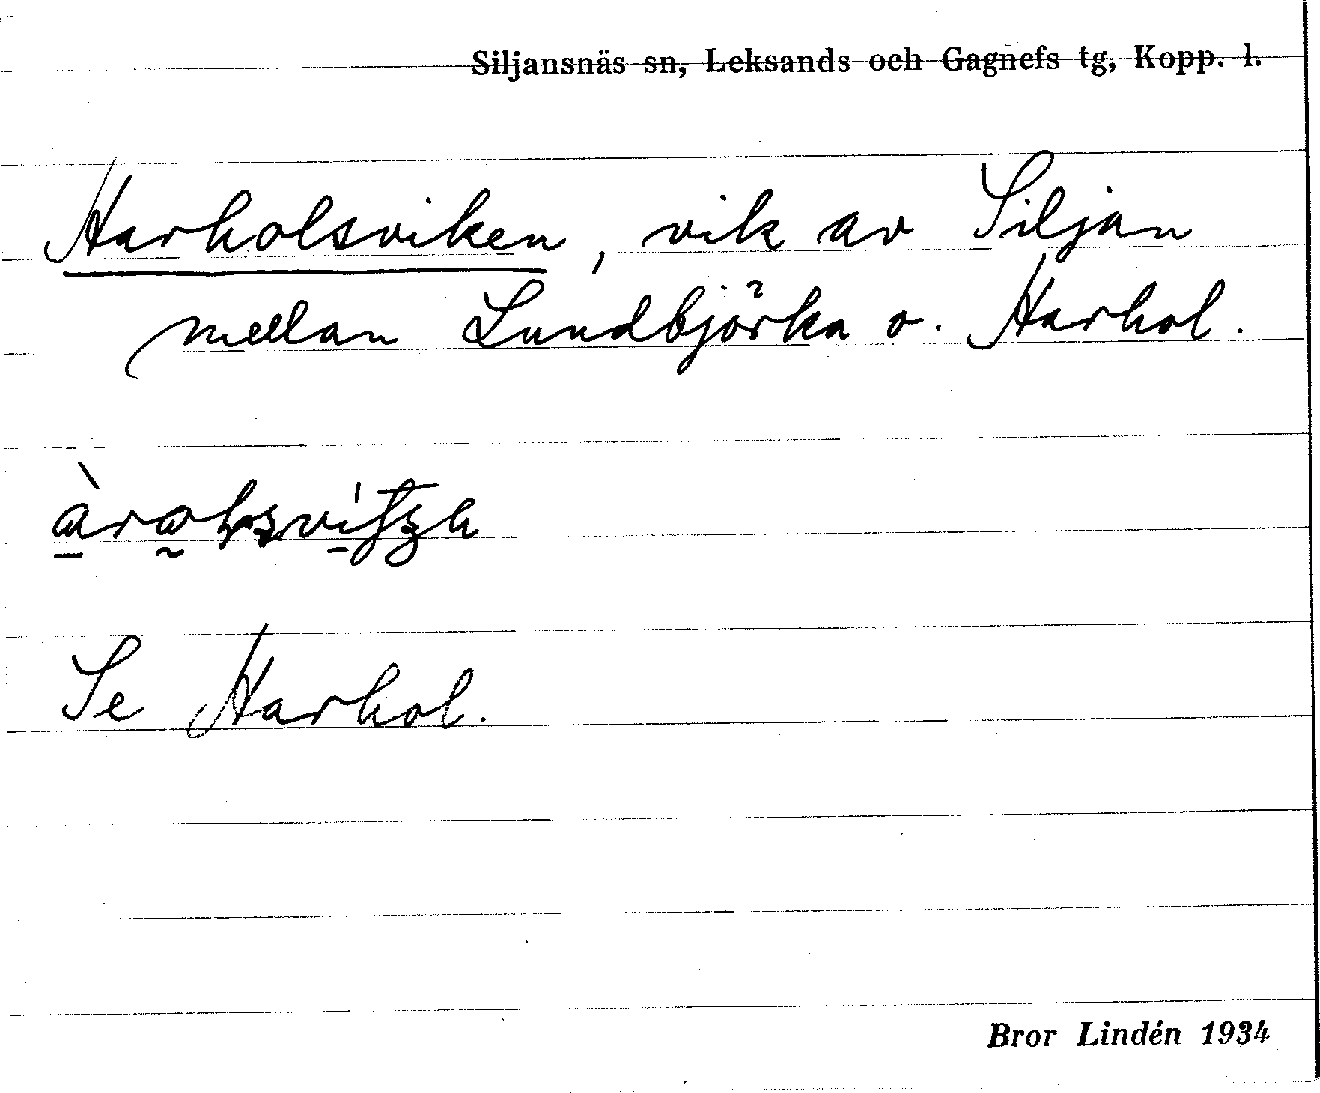 Siljansnäs sn, Leksands och Gagnefs tg, Kopp. l.
Harholsviken, vik av Siljan
mellan Lundbjörka o. Harhol.
Se Harhol.
Bror Lindén 1934